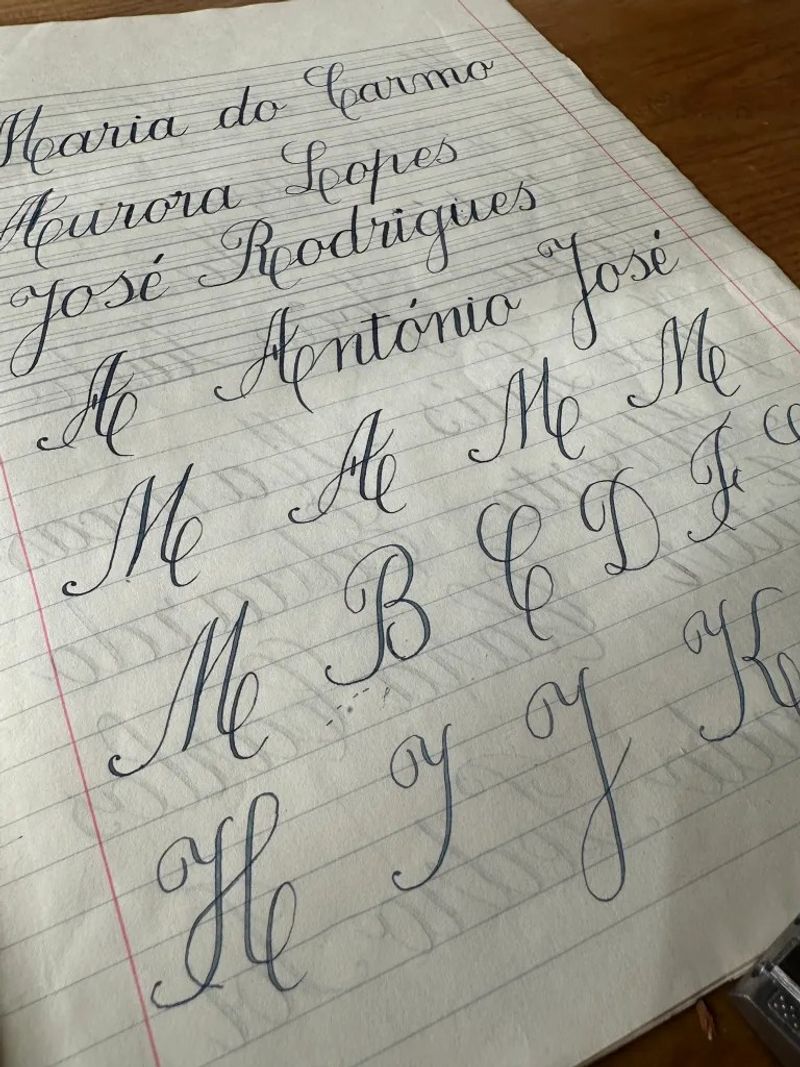 Maria do Carmo
Aurora Lopes
José Rodrigues
A António José
M A M M
M B C D F
H I J K